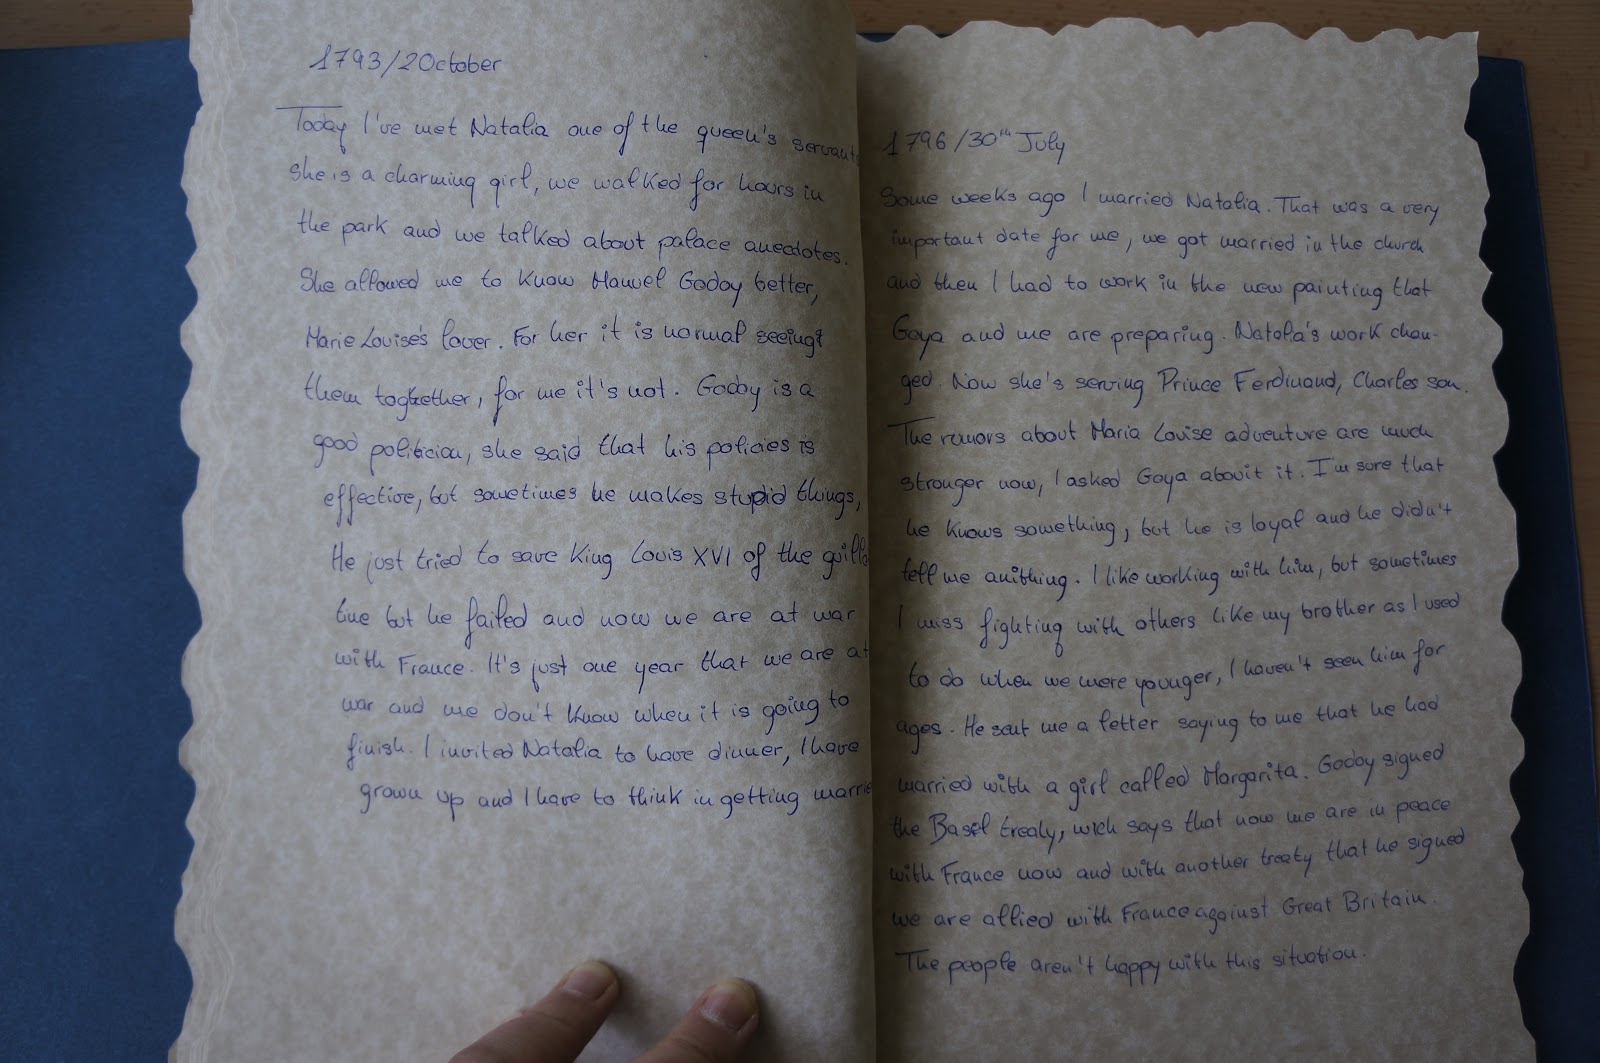 1793/2October
Today I've met Natalia one of the queen's servants
she is a charming girl, we walked for hours in
the park and we talked about palace anecdotes.
She allowed me to know Manuel Godoy better,
Marie Louise's lover. For her it is normal seeing
them together, for me it's not. Godoy is a
good politician, she said that his policies is
effective, but sometimes he makes stupid things,
He just tried to save King Louis XVI of the guillo
tine but he failed and now we are at war
with France. It's just one year that we are at
war and we don't know when it is going to
finish. I invited Natalia to have dinner, I have
grown up and I have to think in getting marrie
1796/30th July
Some weeks ago I married Natalia. That was a very
important date for me, we got married in the church
and then I had to work in the new painting that
Goya and me are preparing. Natalia's work chan-
ged. Now she's serving Prince Ferdinand, Charles son.
The rumors about Maria Louise adventure are much
stronger now, I asked Goya about it. I'm sure that
he knows something, but he is loyal and he didn't
tell me anithing. I like working with him, but sometimes
I miss fighting with others like my brother as I used
to do when we were younger, I haven't seen him for
ages. He sent me a letter saying to me that he had
married with a girl called Margarita. Godoy signed
the Basel treaty, wich says that now we are in peace
with France now and with another treaty that he signed
we are allied with France against Great Britain.
The people aren't happy with this situation.